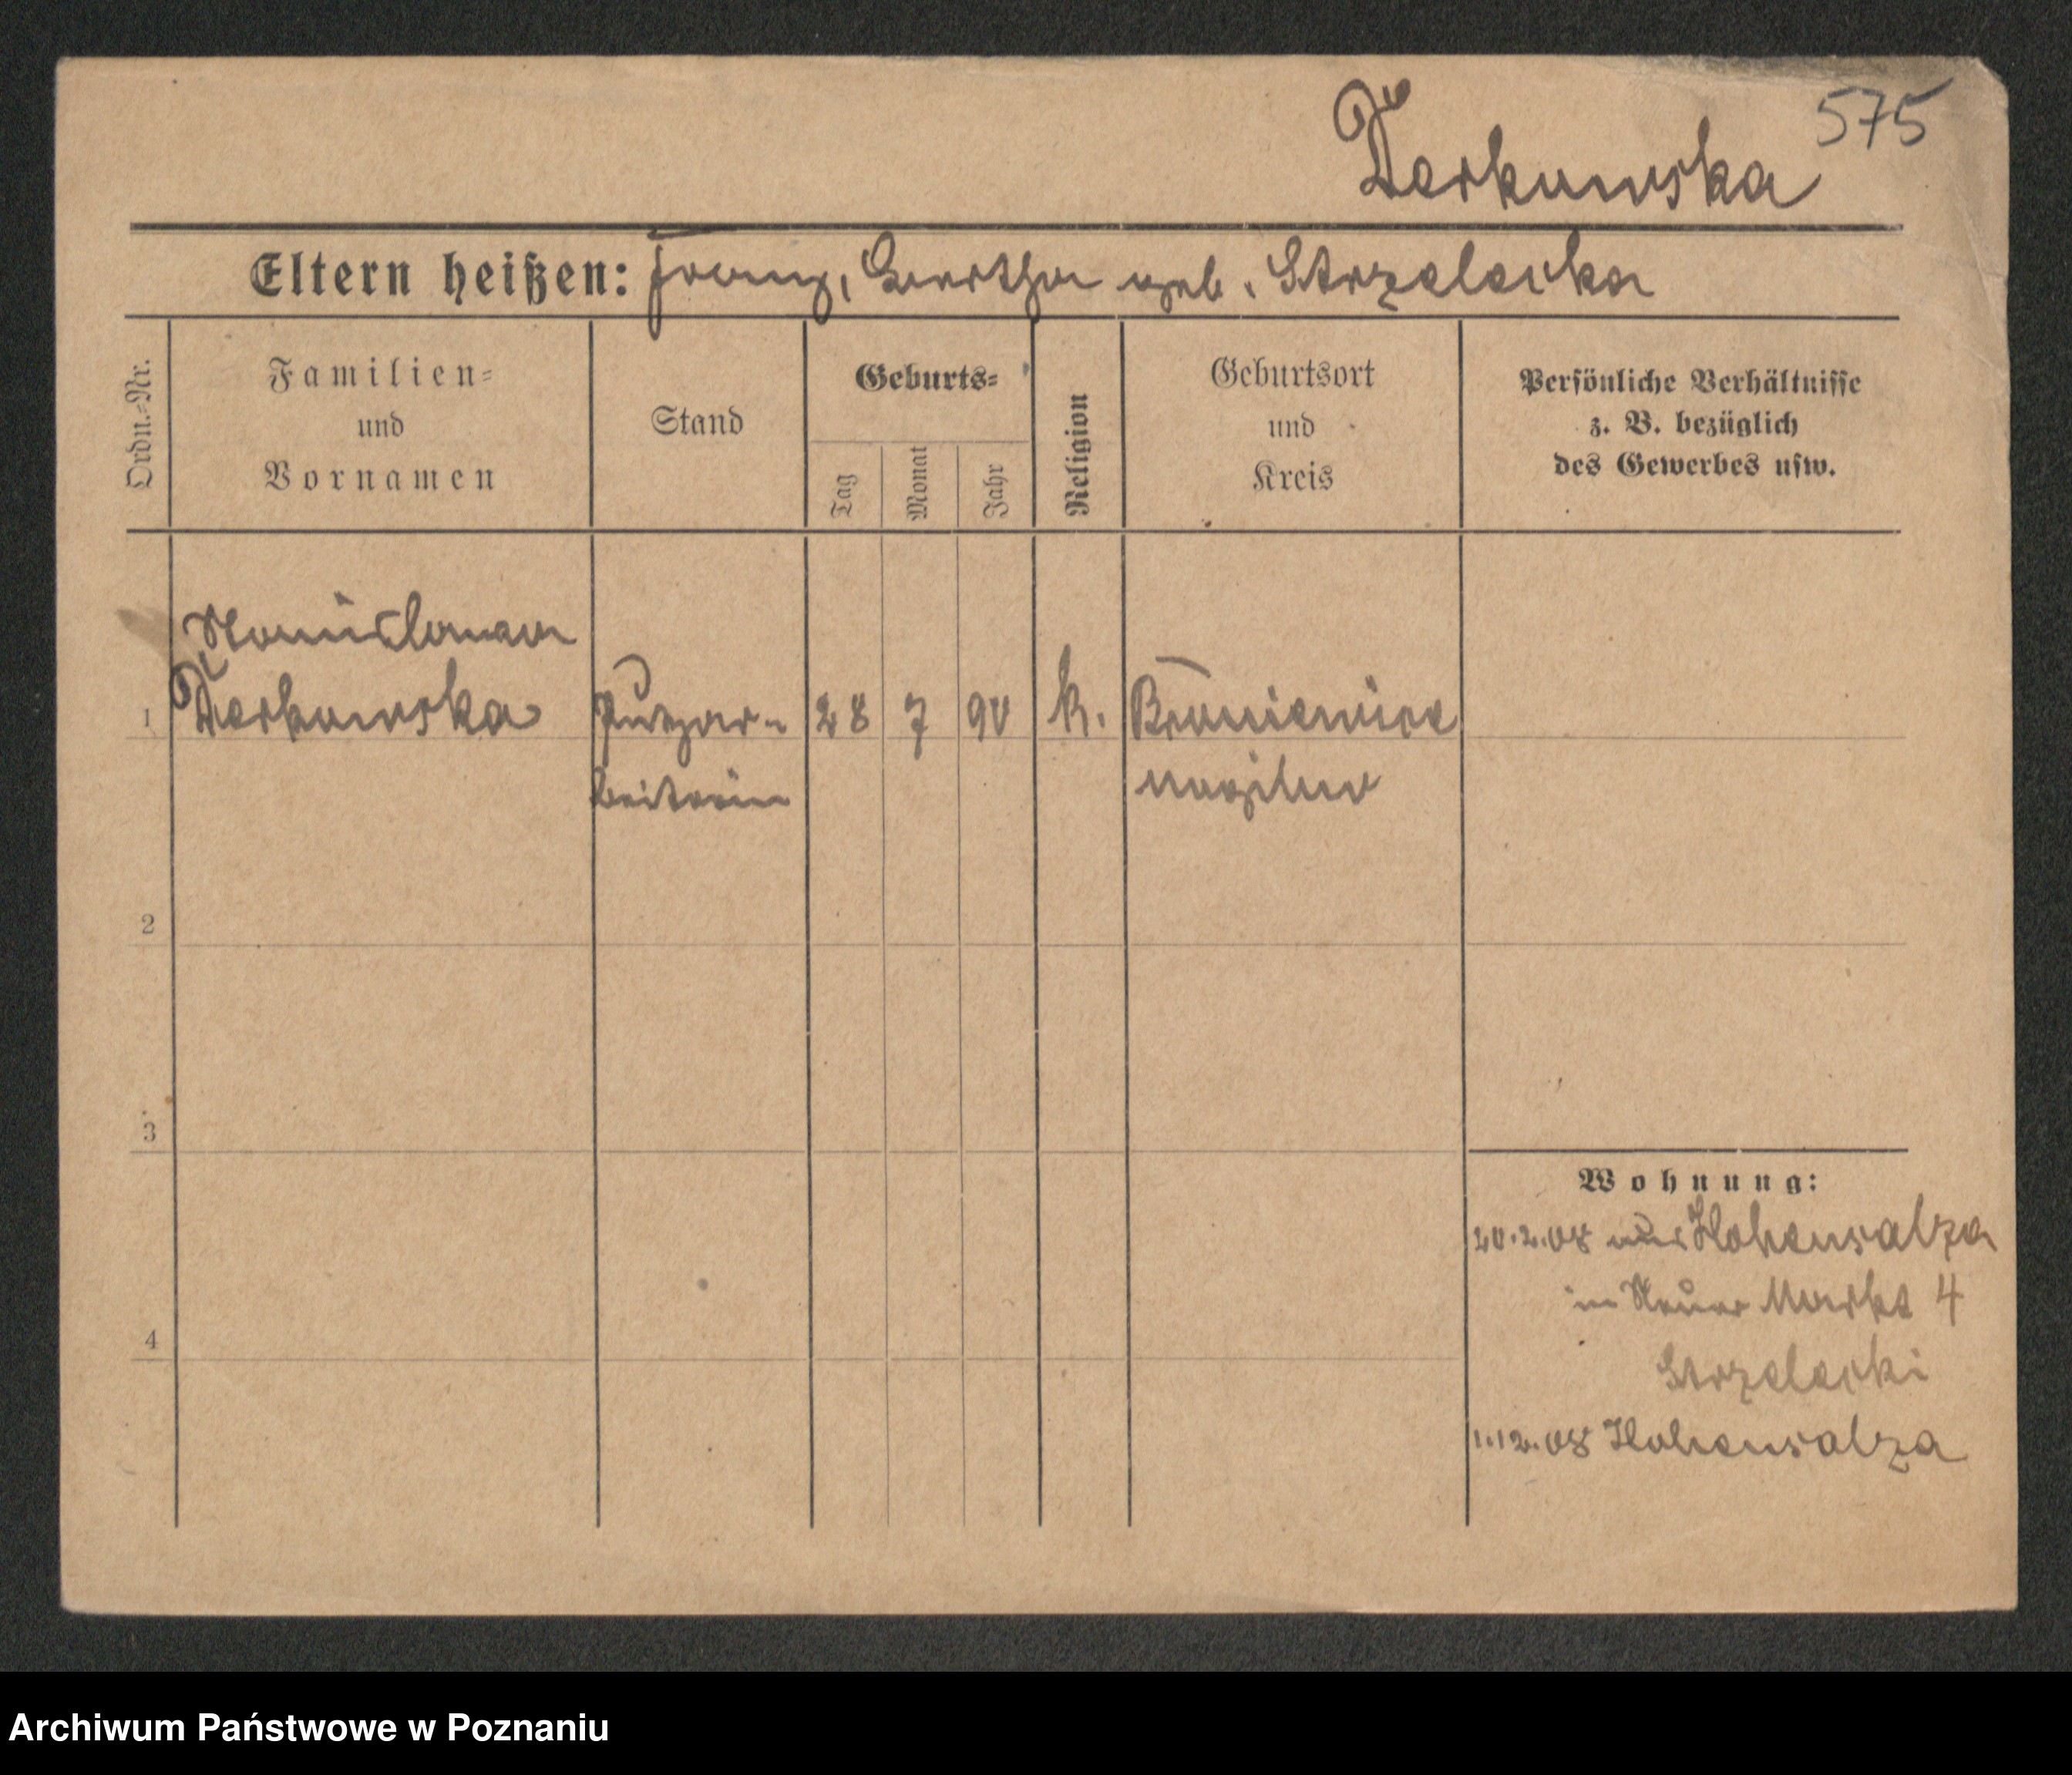 575
Derkowska
Eltern heißen: Franz, Bertha geb. Strzelecka
Ordn.-Nr.
Familien-
und
Vornamen
Stand
Geburts-
Tag
Monat
Jahr
Religion
Geburtsort
und
Kreis
Persönliche Verhältnisse
z. B. bezüglich
des Gewerbes usw.
Stanislawa
1 Derkowska Putzar- 28 7 90 k. Broniewice
beiterin Mogilno
2
3
4
Wohnung:
20.2.08 aus Hohensalza
in Neuer Markt 4
Strzelecki
1.12.08 Hohensalza
Archiwum Państwowe w Poznaniu